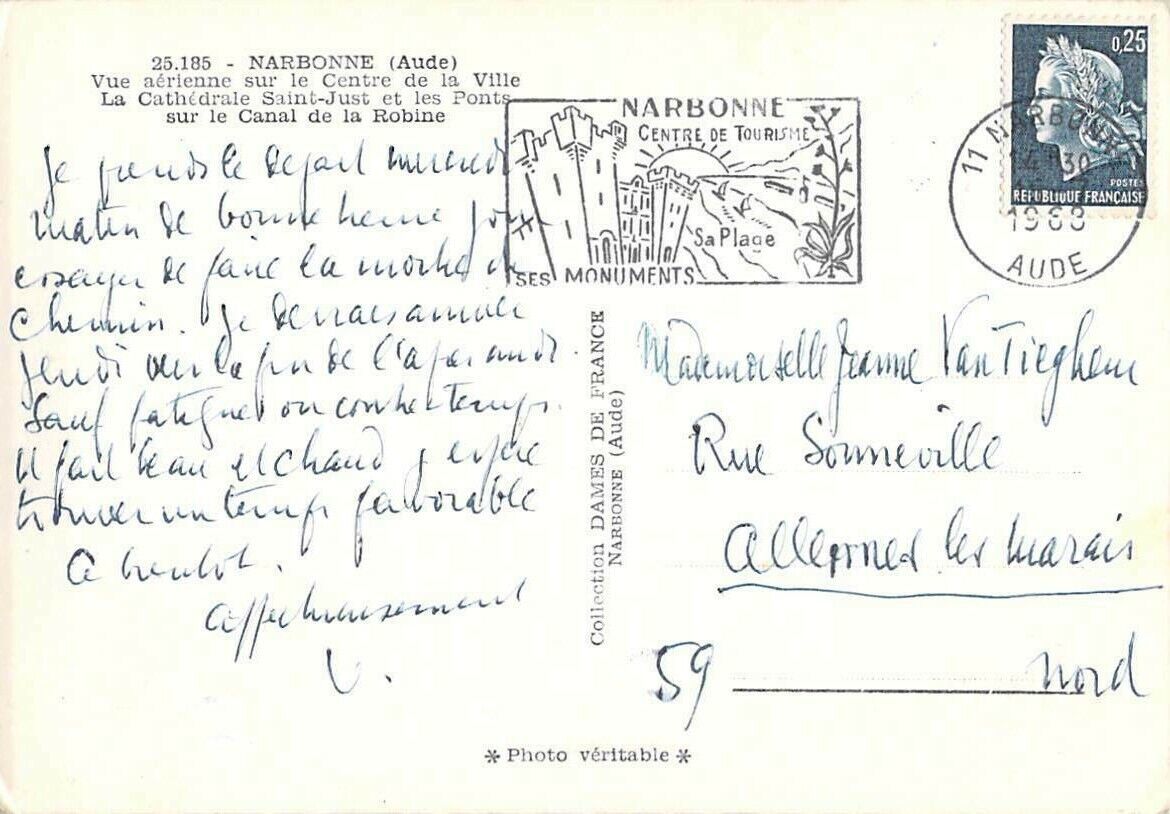 25.185 - NARBONNE (Aude)
Vue aérienne sur le Centre de la Ville
La Cathédrale Saint-Just et les Ponts
sur le Canal de la Robine
Je prends le départ mercredi
matin de bonne heure pour
essayer de faire la moitié du
chemin. Je devrais arriver
jeudi vers la fin de l'après midi
sauf fatigue ou contre-temps.
Il fait beau et chaud j'espère
trouver un temps favorable
A bientôt.
affectueusement
V.
NARBONNE
CENTRE DE TOURISME
Sa Plage
SES MONUMENTS
0,25
POSTES
RÉPUBLIQUE FRANÇAISE
11 NARBONNE
14 H 30
1968
AUDE
Collection DAMES DE FRANCE
NARBONNE (Aude)
Mademoiselle Jeanne Van Tieghem
Rue Sonneville
Allennes les Marais
59 Nord
* Photo véritable *